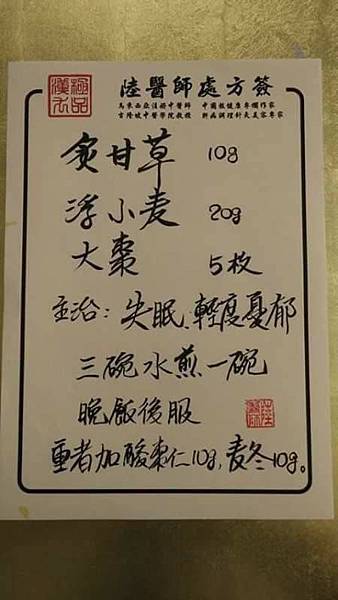 極品漢方
陸醫師處方簽
馬來西亞注冊中醫師 中國報健康專欄作家
吉隆坡中醫學院教授 針灸美容專家
炙甘草 10g
浮小麦 20g
大棗 5枚
主治:失眠.輕度憂郁
三碗水煎一碗
晚飯後服
重者加酸棗仁10g,麦冬10g。